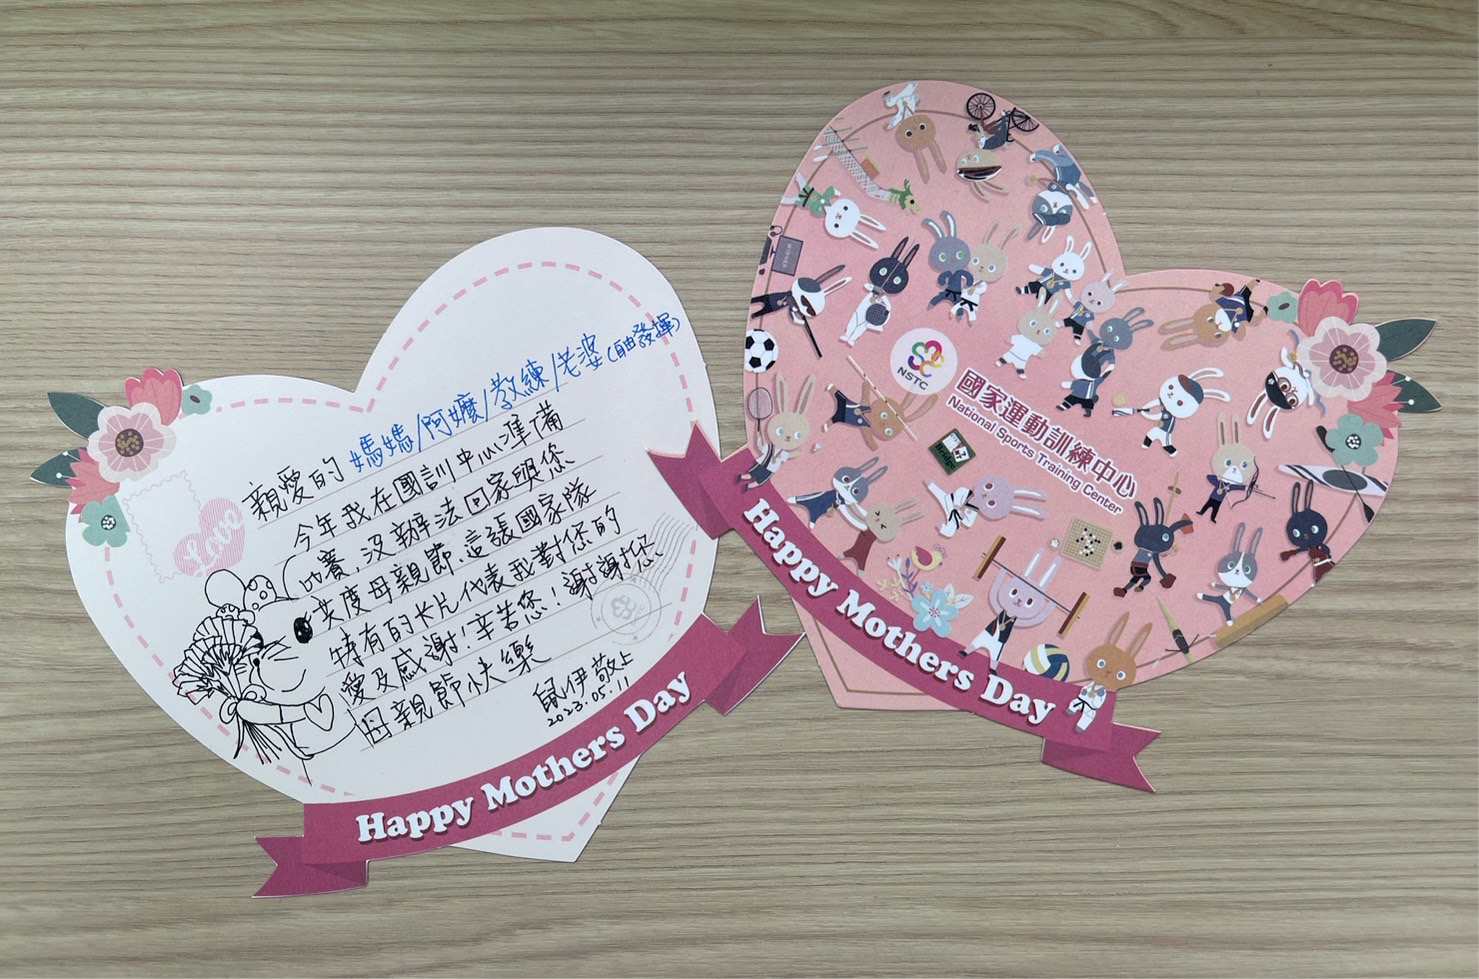 親愛的 媽媽/阿嬤/教練/老婆(自由發揮)
今年我在國訓中心準備
比賽,沒辦法回家跟您
共度母親節.這張國家隊
特有的卡片代表我對您的
愛及感謝!辛苦您!謝謝您.
母親節快樂
敬上
2023.05.11
Love
Happy Mothers Day
NSTC
國家運動訓練中心
National Sports Training Center
WINNER
Bridge
Happy Mothers Day